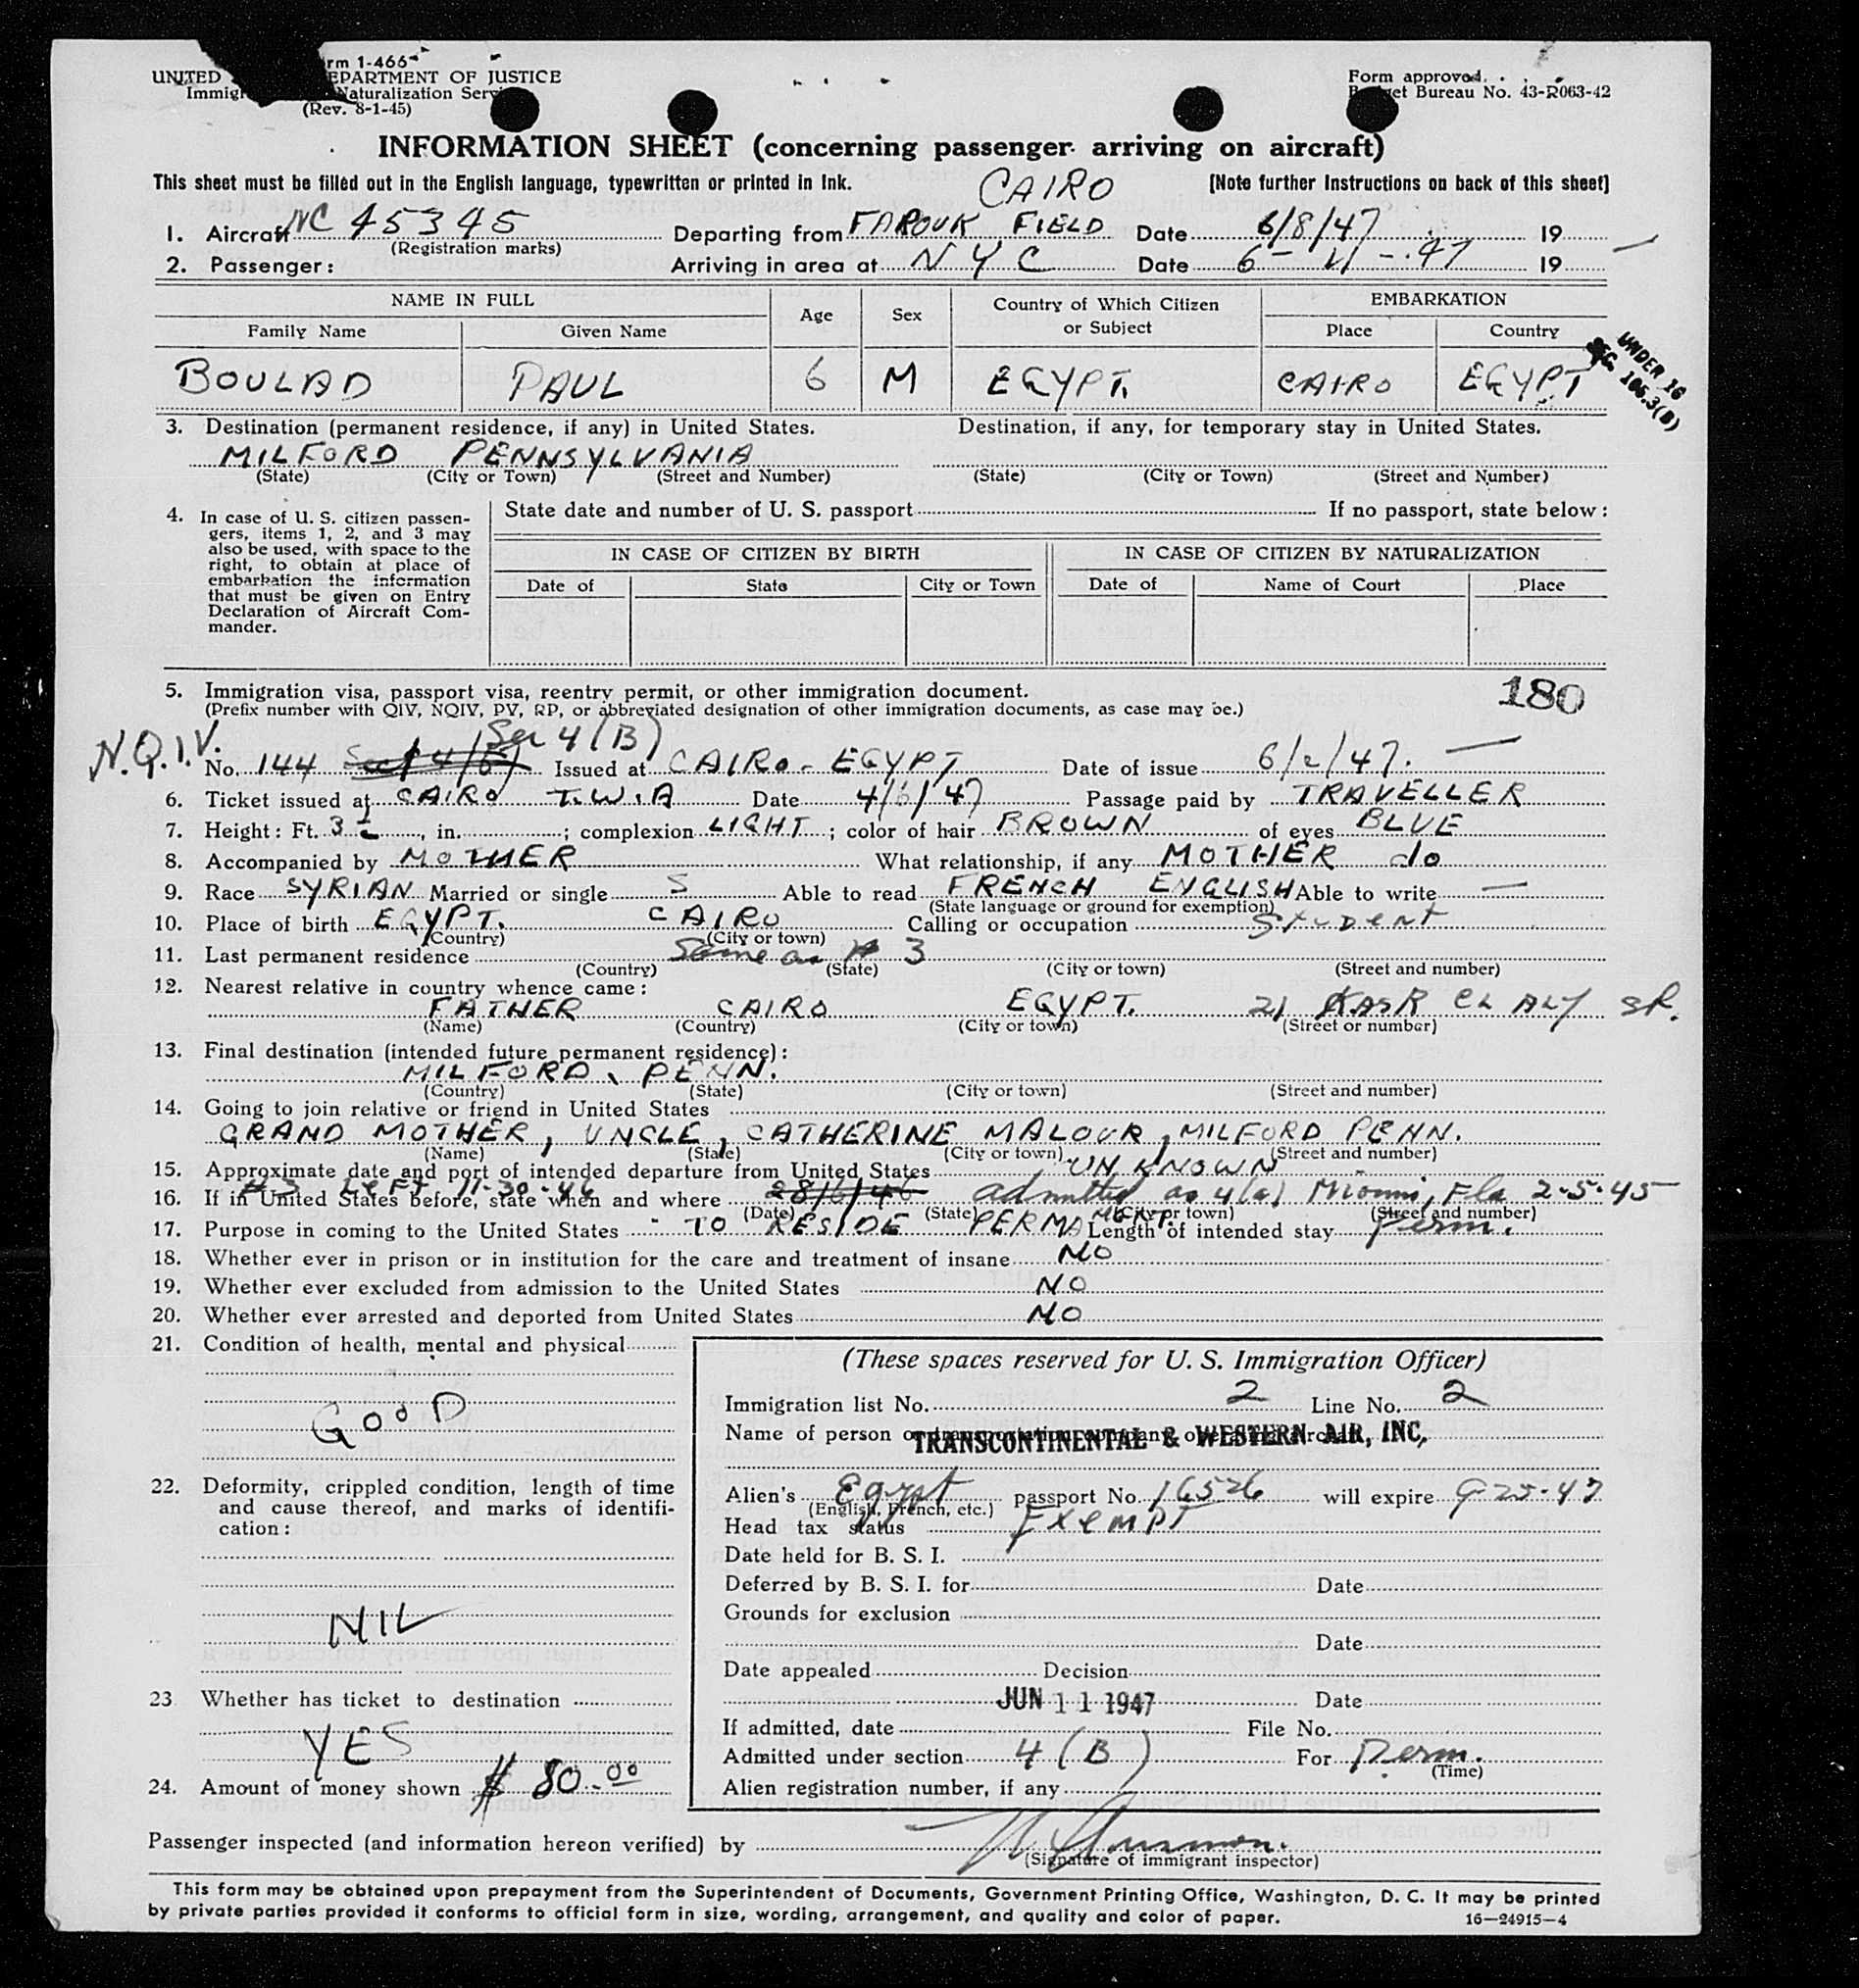 rm 1-466
UNITED EPARTMENT OF JUSTICE
Immigr Naturalization Serv
(Rev. 8-1-45)
Form approved.
et Bureau No. 43-R063-42
INFORMATION SHEET (concerning passenger arriving on aircraft)
This sheet must be filled out in the English language, typewritten or printed in ink. [Note further instructions on back of this sheet]
CAIRO
1. Aircraft NC 45345 Departing from FAROUK FIELD Date 6/8/47 19
(Registration marks)
2. Passenger: Arriving in area at N Y C Date 6-11-47 19
NAME IN FULL Age Sex Country of Which Citizen or Subject EMBARKATION
Family Name Given Name Place Country
BOULAD PAUL 6 M EGYPT. CAIRO EGYPT
UNDER 16
SEC. 106.3(B)
3. Destination (permanent residence, if any) in United States. Destination, if any, for temporary stay in United States.
MILFORD PENNSYLVANIA
(State) (City or Town) (Street and Number) (State) (City or Town) (Street and Number)
4. In case of U. S. citizen passen-
gers, items 1, 2, and 3 may
also be used, with space to the
right, to obtain at place of
embarkation the information
that must be given on Entry
Declaration of Aircraft Com-
mander.
State date and number of U. S. passport If no passport, state below:
IN CASE OF CITIZEN BY BIRTH IN CASE OF CITIZEN BY NATURALIZATION
Date of State City or Town Date of Name of Court Place
5. Immigration visa, passport visa, reentry permit, or other immigration document. 180
(Prefix number with QIV, NQIV, PV, RP, or abbreviated designation of other immigration documents, as case may be.)
Sec 4(B)
N.Q.I.V. No. 144 Sec 4/B/ Issued at CAIRO - EGYPT Date of issue 6/2/47.
6. Ticket issued at CAIRO T.W.A Date 4/6/47 Passage paid by TRAVELLER
7. Height: Ft. 3½, in. ; complexion LIGHT ; color of hair BROWN of eyes BLUE
8. Accompanied by MOTHER What relationship, if any MOTHER do
9. Race SYRIAN Married or single S Able to read FRENCH ENGLISH Able to write —
(State language or ground for exemption)
10. Place of birth EGYPT. CAIRO Calling or occupation Student
(Country) (City or town)
11. Last permanent residence Same as # 3
(Country) (State) (City or town) (Street and number)
12. Nearest relative in country whence came:
FATHER CAIRO EGYPT. 21 KASR EL ALY SR.
(Name) (Country) (City or town) (Street or number)
13. Final destination (intended future permanent residence):
MILFORD, PENN.
(Country) (State) (City or town) (Street and number)
14. Going to join relative or friend in United States
GRAND MOTHER, UNCLE, CATHERINE MALOUK, MILFORD PENN.
(Name) (State) (City or town) (Street and number)
15. Approximate date and port of intended departure from United States UNKNOWN
Left 11-30-46
16. If in United States before, state when and where 28/6/46 admitted as 4(a) Miami, Fla 2-5-45
(Date) (State) (City or town) (Street and number)
17. Purpose in coming to the United States TO RESIDE PERMANENT. Length of intended stay Perm.
18. Whether ever in prison or in institution for the care and treatment of insane NO
19. Whether ever excluded from admission to the United States NO
20. Whether ever arrested and deported from United States NO
21. Condition of health, mental and physical
GOOD
22. Deformity, crippled condition, length of time
and cause thereof, and marks of identifi-
cation:
NIL
23 Whether has ticket to destination
YES
24. Amount of money shown $ 80.00
(These spaces reserved for U. S. Immigration Officer)
Immigration list No. 2 Line No. 2
Name of person or transportation company operating aircraft
TRANSCONTINENTAL & WESTERN AIR, INC,
Alien's Egypt passport No. 16526 will expire 9-25-47
(English, French, etc.)
Head tax status Exempt
Date held for B. S. I.
Deferred by B. S. I. for Date
Grounds for exclusion
Date
Date appealed Decision
JUN 11 1947 Date
If admitted, date File No.
Admitted under section 4 (B) For Perm.
(Time)
Alien registration number, if any
Passenger inspected (and information hereon verified) by
(Signature of immigrant inspector)
This form may be obtained upon prepayment from the Superintendent of Documents, Government Printing Office, Washington, D. C. It may be printed
by private parties provided it conforms to official form in size, wording, arrangement, and quality and color of paper. 16—24915-4